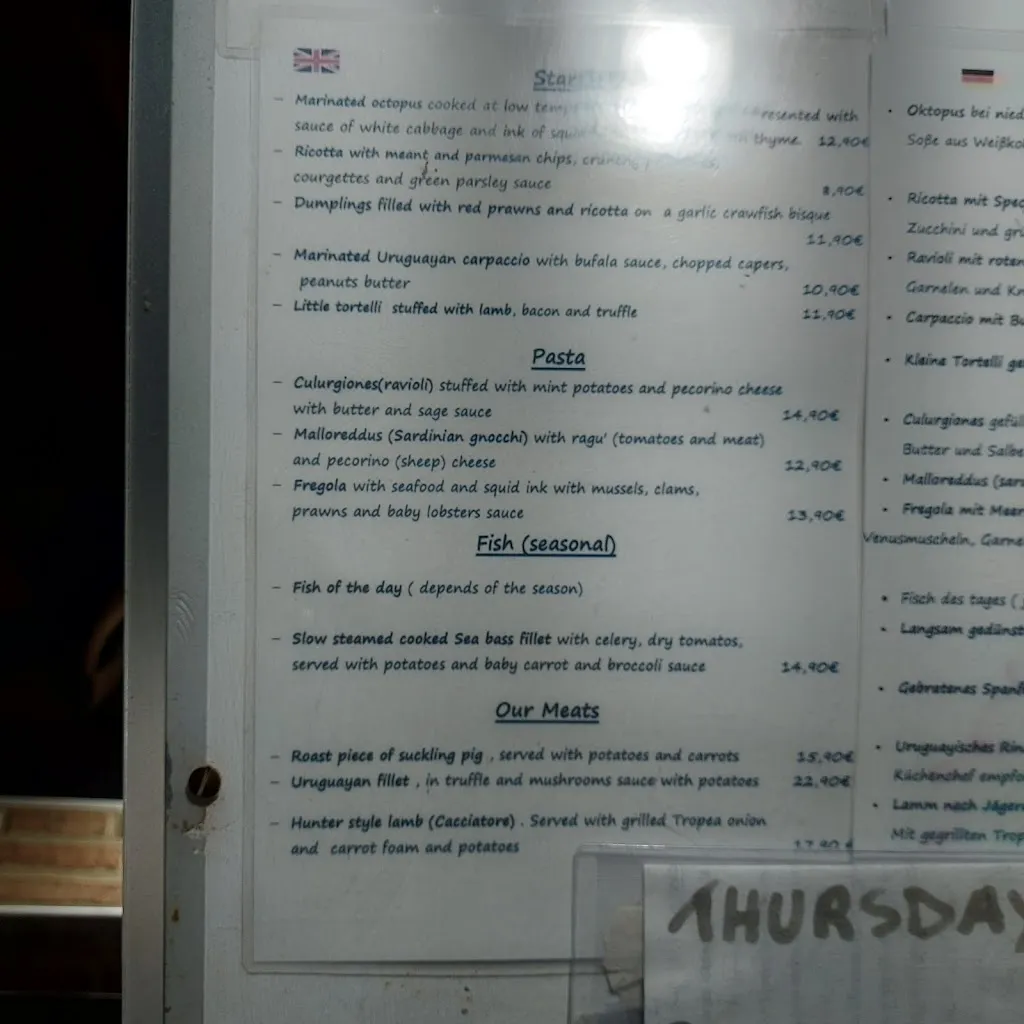 Marinated octopus cooked at low presented with
sauce of white cabbage and ink of thyme. 12,90€
- Ricotta with meant and parmesan chips,
courgettes and green parsley sauce 8,90€
- Dumplings filled with red prawns and ricotta on a garlic crawfish bisque
11,90€
- Marinated Uruguayan carpaccio with bufala sauce, chopped capers,
peanuts butter 10,90€
- Little tortelli stuffed with lamb, bacon and truffle 11,90€
Pasta
- Culurgiones(ravioli) stuffed with mint potatoes and pecorino cheese
with butter and sage sauce 14,90€
- Malloreddus (Sardinian gnocchi) with ragu' (tomatoes and meat)
and pecorino (sheep) cheese 12,90€
- Fregola with seafood and squid ink with mussels, clams,
prawns and baby lobsters sauce 13,90€
Fish (seasonal)
- Fish of the day ( depends of the season)
- Slow steamed cooked Sea bass fillet with celery, dry tomatos,
served with potatoes and baby carrot and broccoli sauce 14,90€
Our Meats
- Roast piece of suckling pig , served with potatoes and carrots 15,90€
- Uruguayan fillet , in truffle and mushrooms sauce with potatoes 22,90€
- Hunter style lamb (Cacciatore) . Served with grilled Tropea onion
and carrot foam and potatoes 17,90 €
• Oktopus bei
Soße aus
• Ricotta mit
Zucchini und
• Ravioli mit roten
Garnelen und
• Carpaccio mit
• Kleine Tortelli
• Culurgiones
Butter und
• Malloreddus
• Fregola mit
Venusmuscheln,
• Fisch des tages (
• Langsam
• Gebratenes
• Uruguayisches
Küchenchef
• Lamm nach
Mit gegrillten
THURSDAY